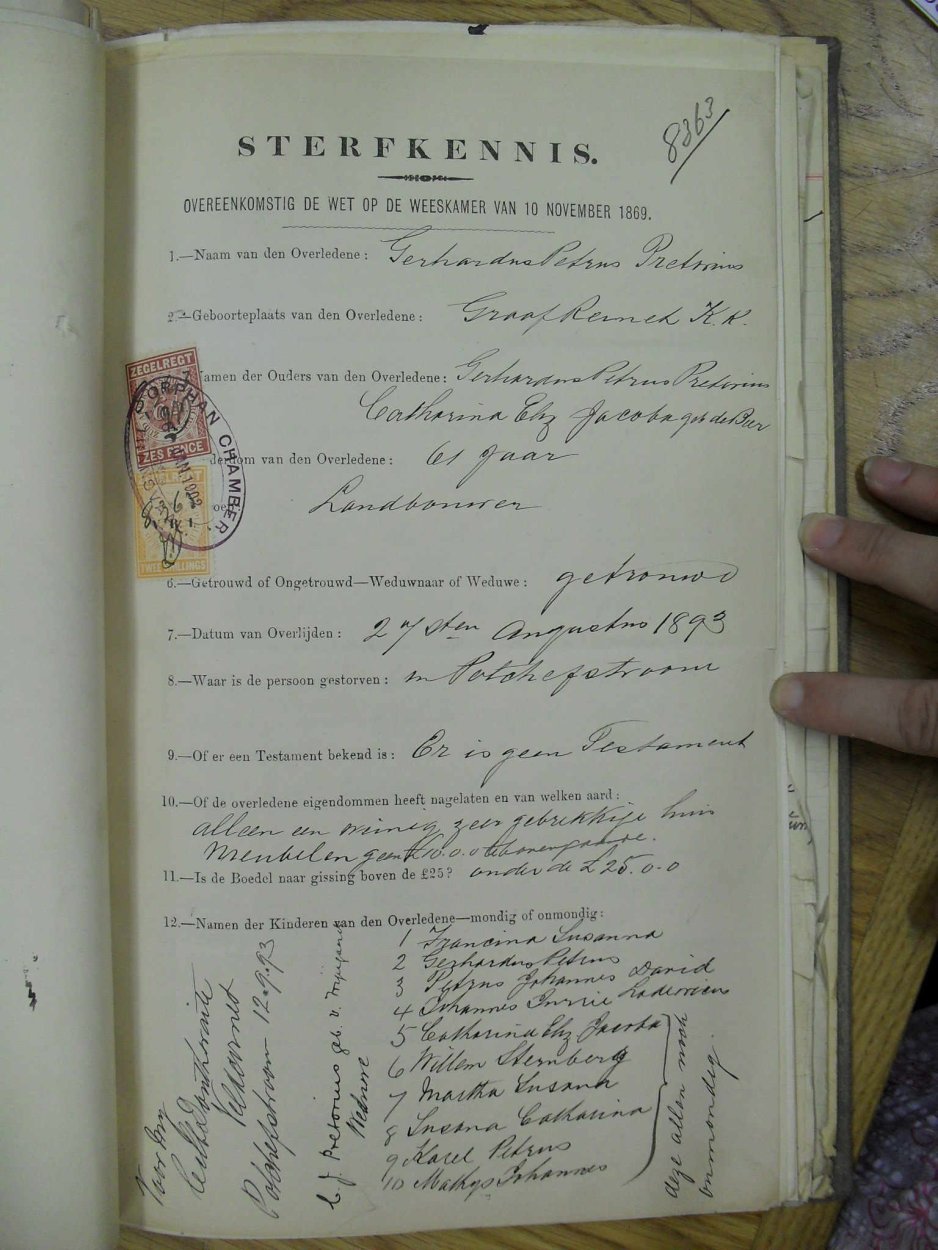 8363/
STERFKENNIS.
OVEREENKOMSTIG DE WET OP DE WEESKAMER VAN 10 NOVEMBER 1869.
1.—Naam van den Overledene: Gerhardus Petrus Pretorius
2.—Geboorteplaats van den Overledene: Graaf Reinet K.K.
Namen der Ouders van den Overledene: Gerhardus Petrus Pretorius
Catharina Eliz Jacoba geb de Beer
derdom van den Overledene: 61 Jaar
Landbouwer
6.—Getrouwd of Ongetrouwd—Weduwnaar of Weduwe: getrouwd
7.—Datum van Overlijden: 27sten Augustus 1893
8.—Waar is de persoon gestorven: in Potchefstroom
9.—Of er een Testament bekend is: Er is geen Testament
10.—Of de overledene eigendommen heeft nagelaten en van welken aard:
alleen een weinig zeer gebrekkige huis
meubelen geen £10.0.0 te bovengaande.
11.—Is de Boedel naar gissing boven de £25? onder de £25.0-0
12.—Namen der Kinderen van den Overledene—mondig of onmondig:
1 Francina Susanna
2 Gerhardus Petrus
3 Petrus Johannes David
4 Johannes Lodewicus
5 Catharina Eliz Jacoba
6 Willem Sternberg
7 Martha Susana
8 Susana Catharina
9 Karel Petrus
10 Mathys Johannes
deze allen nog
onmondig.
C. J. Pretorius geb. v.
Weduwe
Voor my
Veldcornet
Potchefstroom 12-9.93
ZEGELREGT
ZES PENCE
TWEE SHILLINGS
ORPHAN CHAMBER
JAN 1902